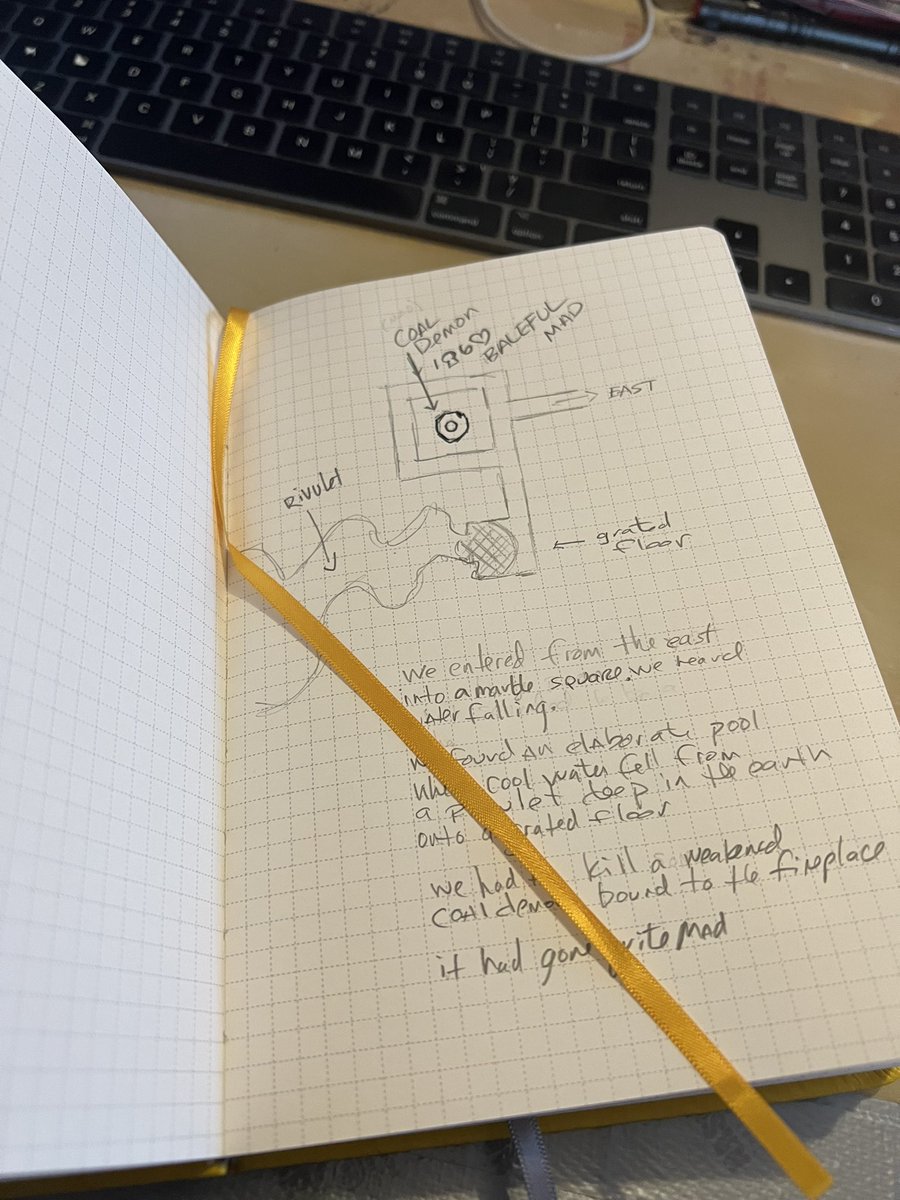 COAL
Demon
186♡
BALEFUL
MAD
EAST
Rivulet
← grated
floor
we entered from the east
into a marble square. we heard
falling.
found AN elaborate pool
cool water fell from
a deep in the earth
onto a grated floor
we had kill a weakened
COAl demon bound to the fireplace
it had gone quite MAD
W
E
R
T
Y
U
I
O
P
D
F
G
H
J
K
L
Z
X
C
V
B
N
M
return
shift
command
option
7
4
5
1
2
0